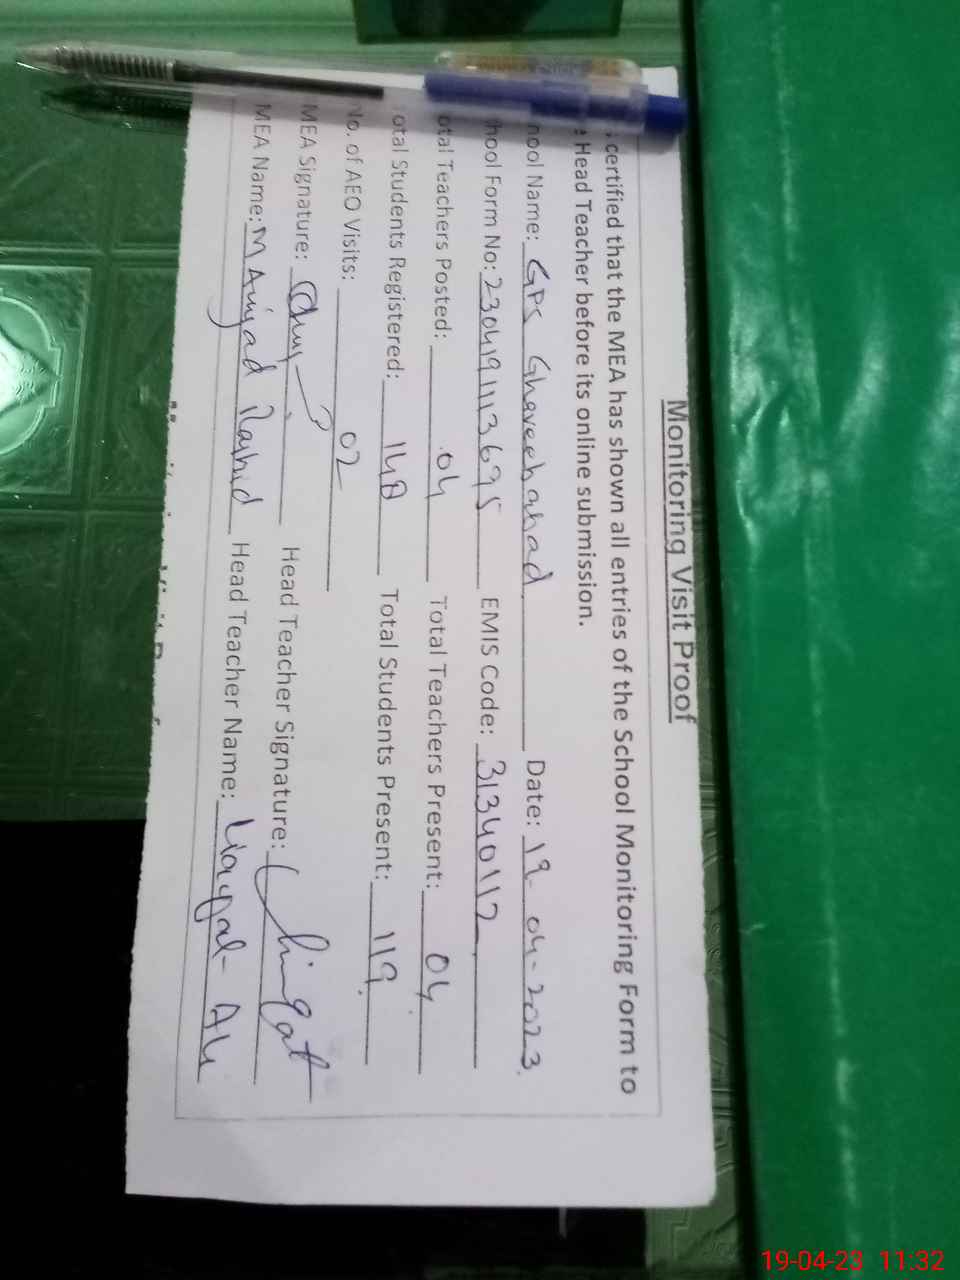 Monitoring Visit Proof
certified that the MEA has shown all entries of the School Monitoring Form to
Head Teacher before its online submission.
hool Name: GPS Date: 19-04-2023
hool Form No: 23041911113695 EMIS Code: 31340112
otal Teachers Posted: 04 Total Teachers Present: 04
otal Students Registered: 140 Total Students Present: 119
No. of AEO Visits: 02
MEA Signature: Head Teacher Signature: Liaqat
MEA Name: M Amjad Rashid Head Teacher Name: Liaqat Ali
19-04-23 11:32